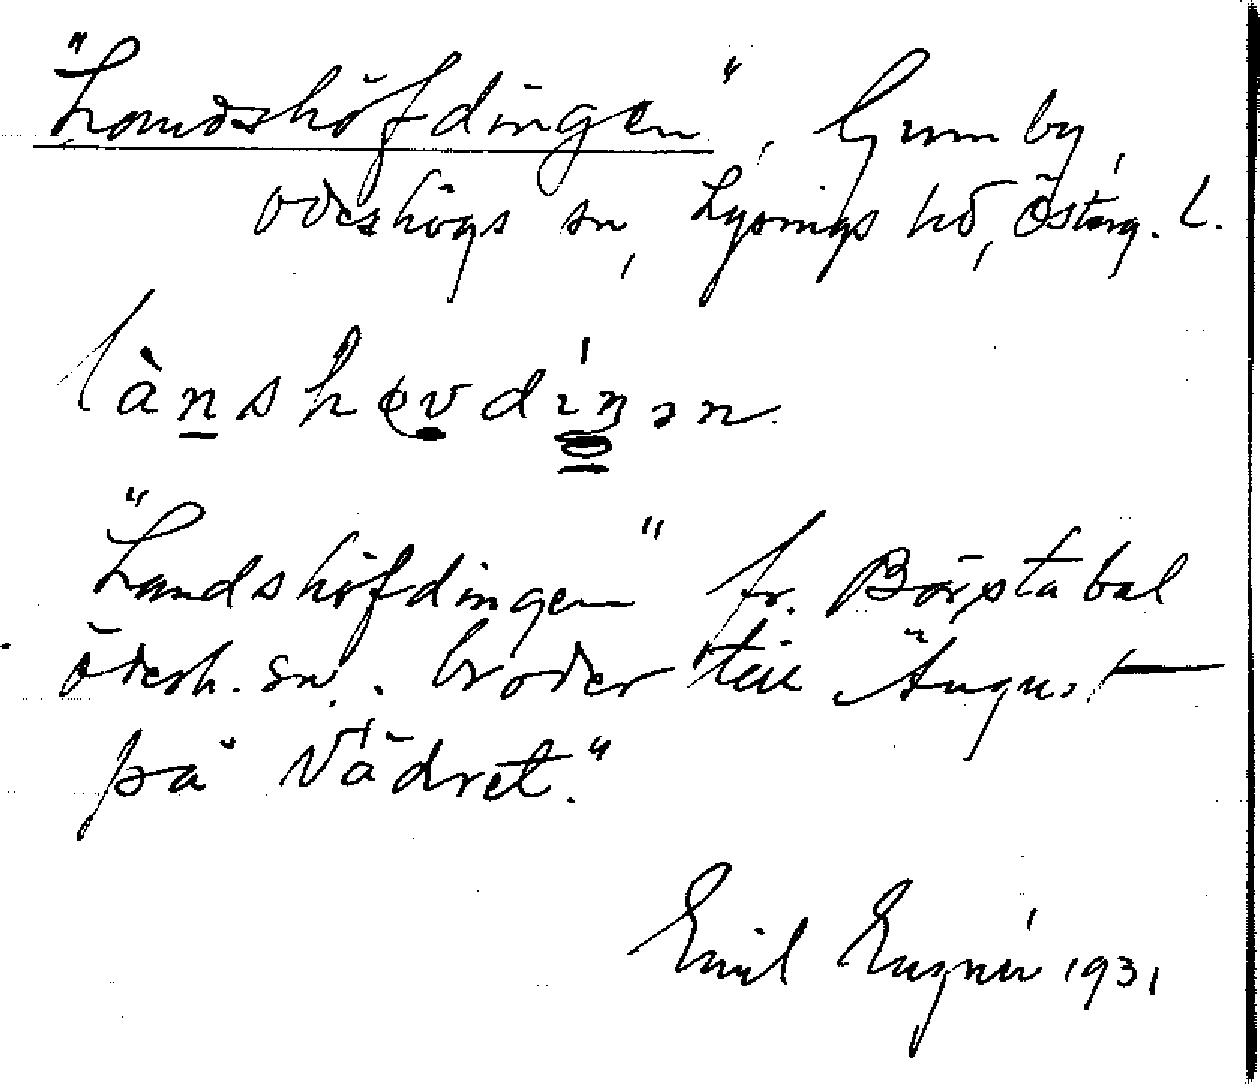 "Landshöfdingen", Ljunnby,
Ödeshögs sn, Lysings hd, Österg. L.
lànshøvdíŋən
"Landshöfdingen" fr. Börstabal
Ödesh. sn. broder till "August
på Vädret."
Emil 1931